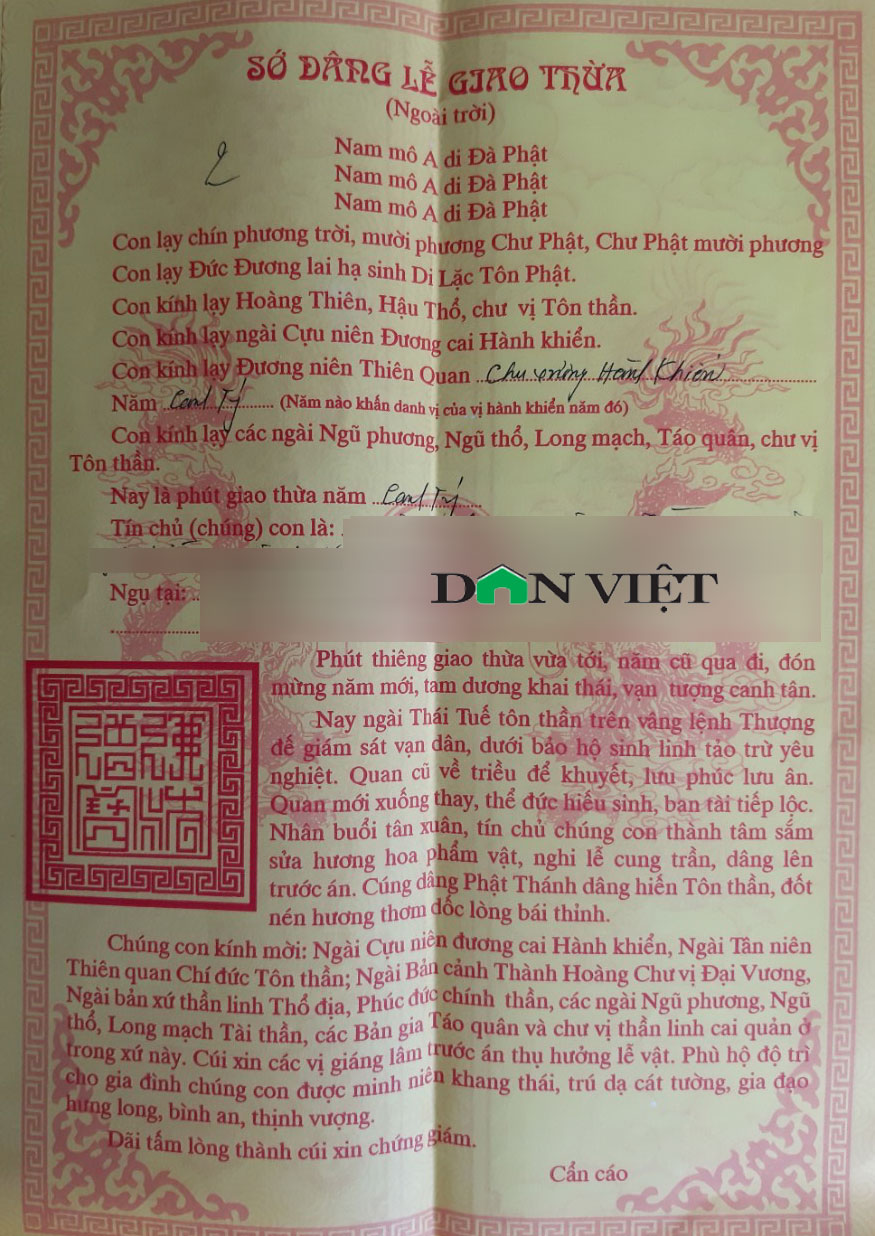 SỚ DÂNG LỄ GIAO THỪA
(Ngoài trời)
2
Nam mô A di Đà Phật
Nam mô A di Đà Phật
Nam mô A di Đà Phật
Con lạy chín phương trời, mười phương Chư Phật, Chư Phật mười phương
Con lạy Đức Đương lai hạ sinh Di Lặc Tôn Phật.
Con kính lạy Hoàng Thiên, Hậu Thổ, chư vị Tôn thần.
Con kính lạy ngài Cựu niên Đương cai Hành khiển.
Con kính lạy Đương niên Thiên Quan Chu vương Hành Khiển
Năm Canh Tý (Năm nào khấn danh vị của vị hành khiển năm đó)
Con kính lạy các ngài Ngũ phương, Ngũ thổ, Long mạch, Táo quân, chư vị
Tôn thần.
Nay là phút giao thừa năm Canh Tý
Tín chủ (chúng) con là:
DÂN VIỆT
Ngụ tại:
Phút thiêng giao thừa vừa tới, năm cũ qua đi, đón
mừng năm mới, tam dương khai thái, vạn tượng canh tân.
Nay ngài Thái Tuế tôn thần trên vâng lệnh Thượng
đế giám sát vạn dân, dưới bảo hộ sinh linh tảo trừ yêu
nghiệt. Quan cũ về triều để khuyết, lưu phúc lưu ân.
Quan mới xuống thay, thể đức hiếu sinh, ban tài tiếp lộc.
Nhân buổi tân xuân, tín chủ chúng con thành tâm sắm
sửa hương hoa phẩm vật, nghi lễ cung trần, dâng lên
trước án. Cúng dâng Phật Thánh dâng hiến Tôn thần, đốt
nén hương thơm dốc lòng bái thỉnh.
Chúng con kính mời: Ngài Cựu niên đương cai Hành khiển, Ngài Tân niên
Thiên quan Chí đức Tôn thần; Ngài Bản cảnh Thành Hoàng Chư vị Đại Vương,
Ngài bản xứ thần linh Thổ địa, Phúc đức chính thần, các ngài Ngũ phương, Ngũ
thổ, Long mạch Tài thần, các Bản gia Táo quân và chư vị thần linh cai quản ở
trong xứ này. Cúi xin các vị giáng lâm trước án thụ hưởng lễ vật. Phù hộ độ trì
cho gia đình chúng con được minh niên khang thái, trú dạ cát tường, gia đạo
hưng long, bình an, thịnh vượng.
Dãi tấm lòng thành cúi xin chứng giám.
Cẩn cáo